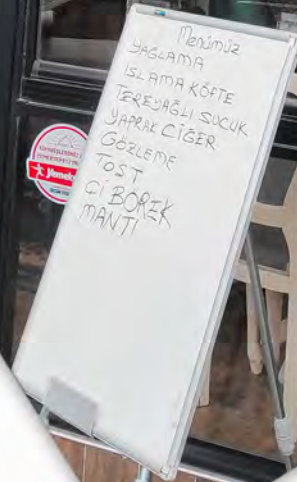 Menümüz
YAĞLAMA
ISLAMA KÖFTE
TEREYAĞLI SUCUK
YAPRAK CİĞER
GÖZLEME
TOST
Çİ BÖREK
MANTI